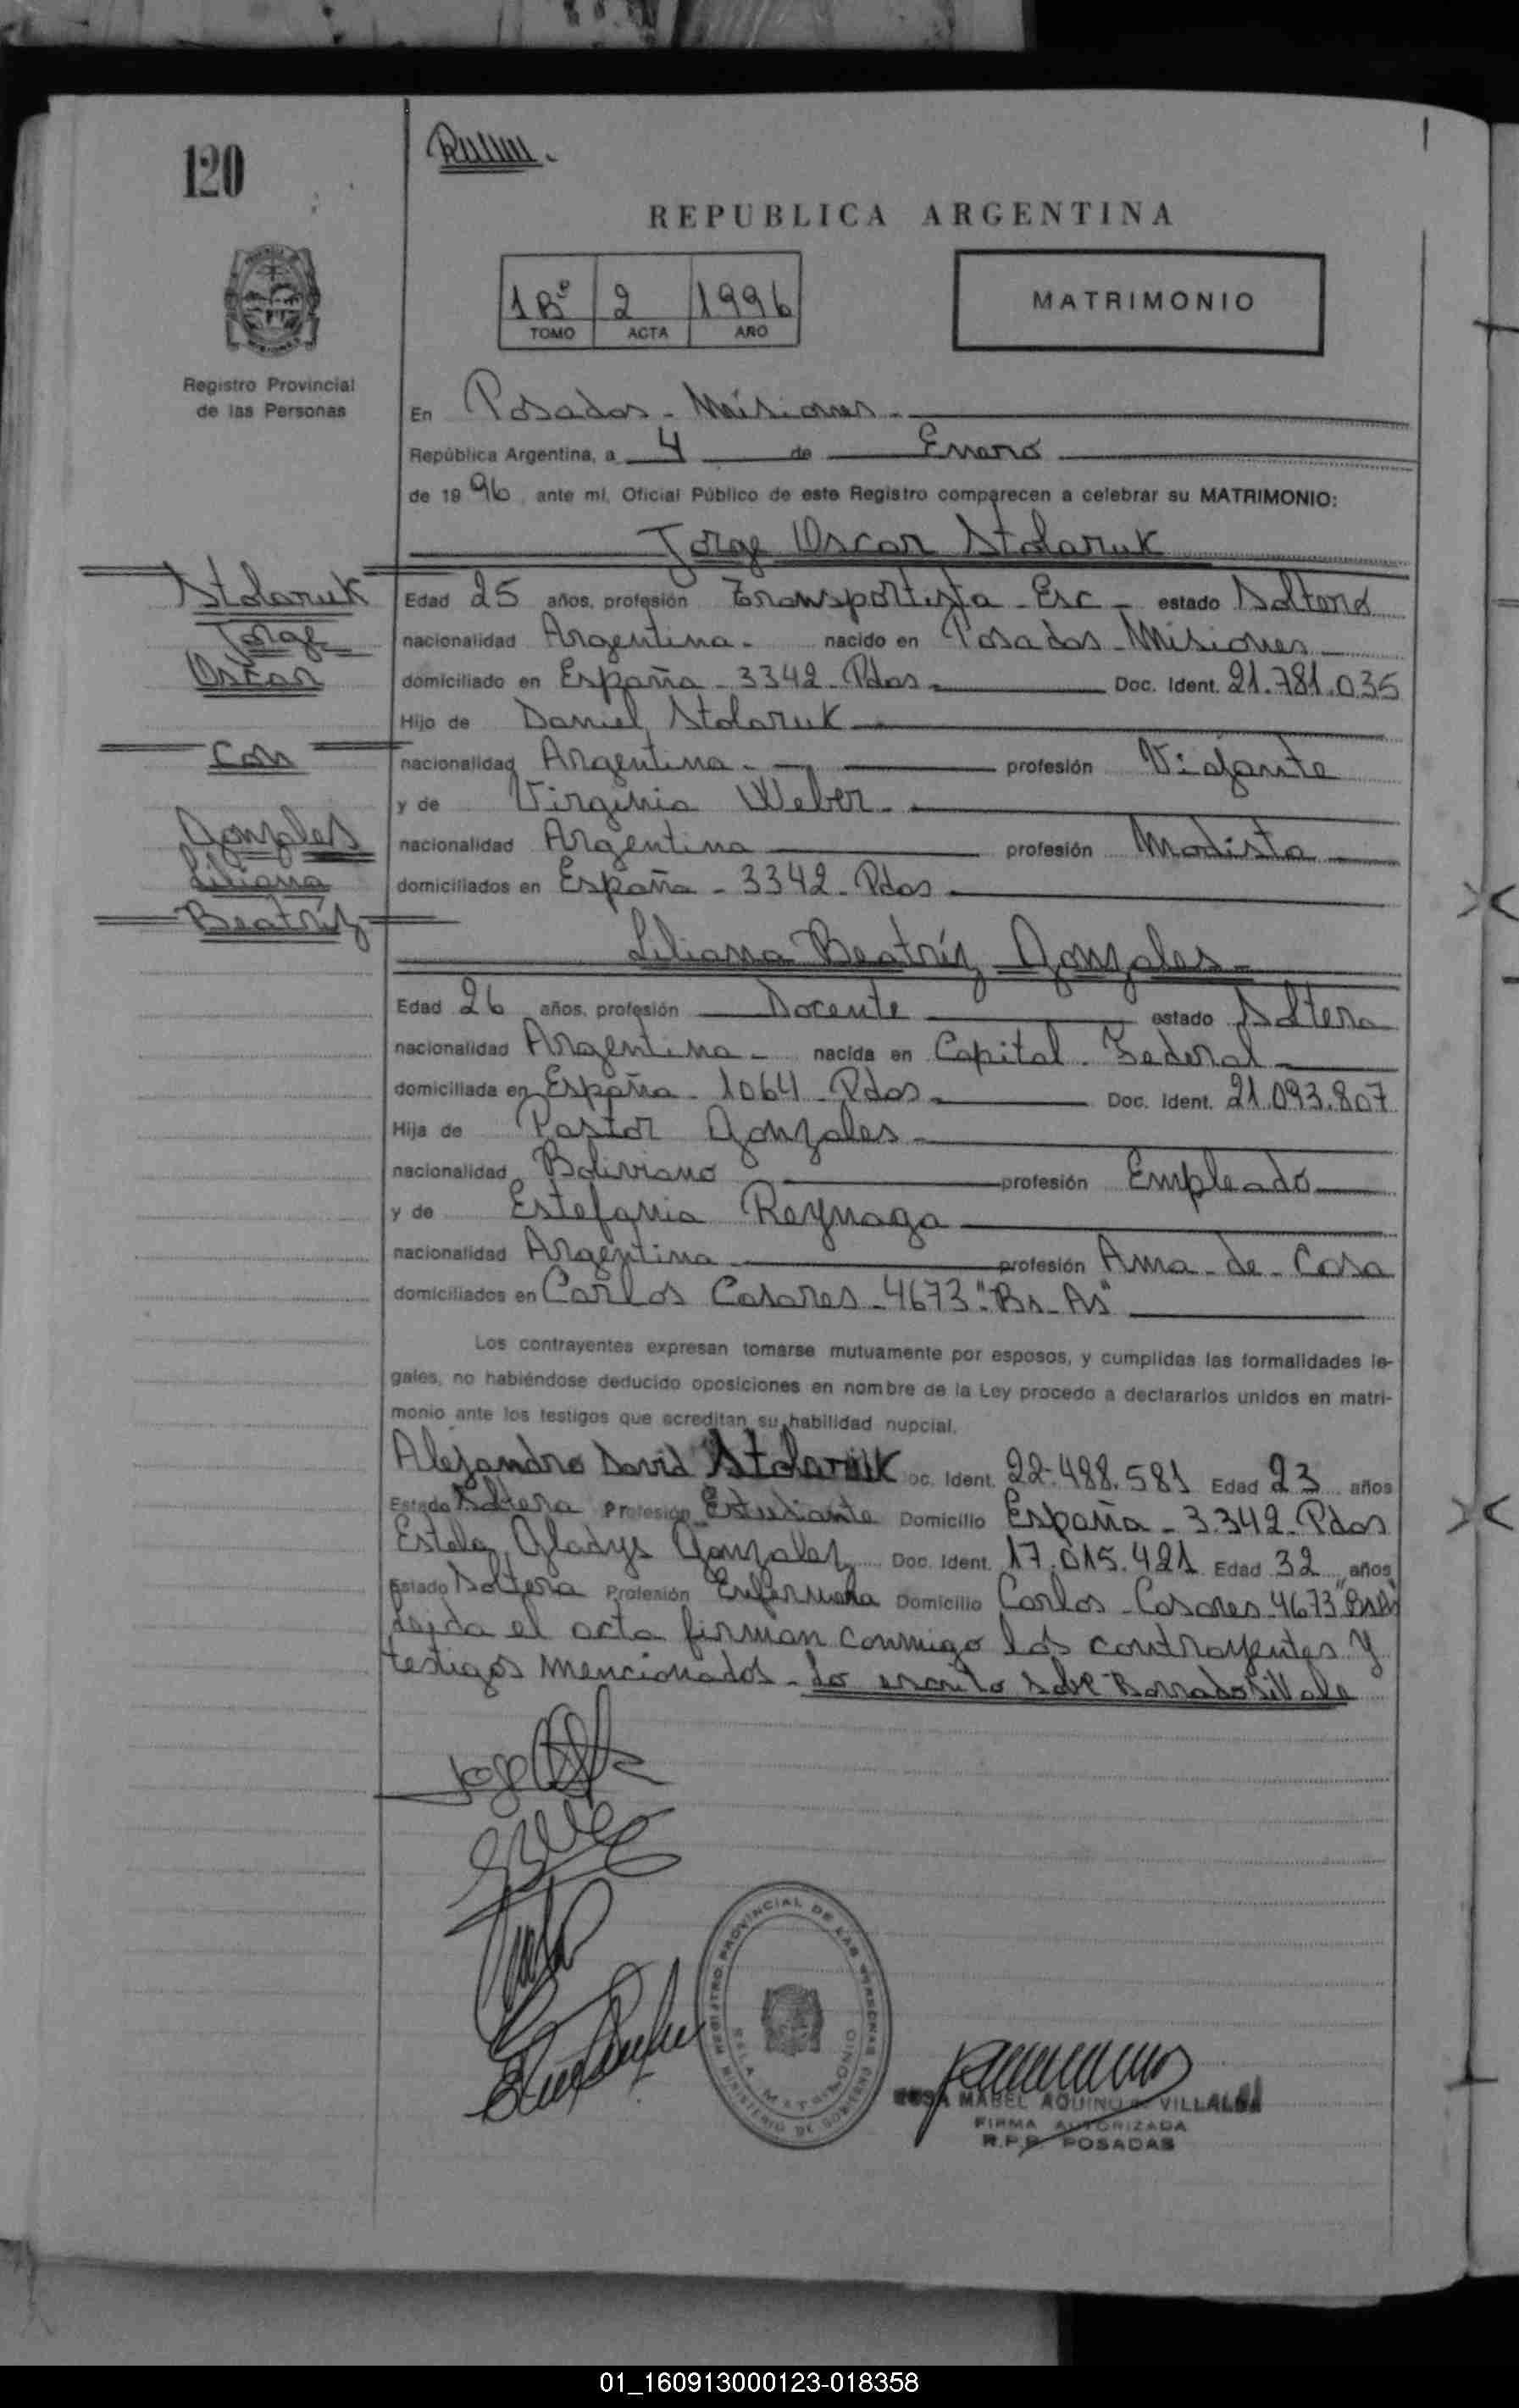 120
REPUBLICA ARGENTINA
1Bº 2 1996
TOMO ACTA AÑO
MATRIMONIO
Registro Provincial
de las Personas
En Posadas - Misiones -
República Argentina, a 4 de Enero
de 1996 ante mí, Oficial Público de este Registro comparecen a celebrar su MATRIMONIO:
Jorge Oscar Stolaruk
Stolaruk
Jorge
Oscar
Con
Gonzales
Liliana
Beatríz
Edad 25 años, profesión Transportista - Esc - estado Soltero
nacionalidad Argentina - nacido en Posadas - Misiones
domiciliado en España - 3342 - Pdas - Doc. Ident. 21.781.035
Hijo de Daniel Stolaruk
nacionalidad Argentina - profesión Viajante
y de Virginia Weber -
nacionalidad Argentina profesión Modista
domiciliados en España - 3342 - Pdas
Liliana Beatríz Gonzales -
Edad 26 años, profesión Docente estado Soltera
nacionalidad Argentina - nacida en Capital - Federal
domiciliada en España - 1064 - Pdas - Doc. Ident. 21.093.807
Hija de Pastor Gonzales
nacionalidad Boliviano profesión Empleado
y de Estefania Reynaga
nacionalidad Argentina profesión Ama - de - Casa
domiciliados en Carlos Casares - 4673 "Bs - As"
Los contrayentes expresan tomarse mutuamente por esposos, y cumplidas las formalidades le-
gales, no habiéndose deducido oposiciones en nombre de la Ley procedo a declararlos unidos en matri-
monio ante los testigos que acreditan su habilidad nupcial.
Alejandro David Stolaruk oc. Ident. 22.488.581 Edad 23 años
Estado Soltera Profesión Estudiante Domicilio España - 3.342 - Pdas
Estela Gladys Gonzalez Doc. Ident. 17.015.421 Edad 32 años
Estado Soltera Profesión Enfermera Domicilio Carlos - Casares 4673 "BsAs
Leida el acta firman conmigo los contrayentes y
testigos mencionados - Lo escrito sobre Borrado Si Vale
REGISTRO PROVINCIAL DE LAS PERSONAS
MINISTERIO DE GOBIERNO
SALA MATRIMONIO
ROSA MABEL AQUINO de VILLALBA
FIRMA AUTORIZADA
R.P.P. POSADAS
01_160913000123-018358